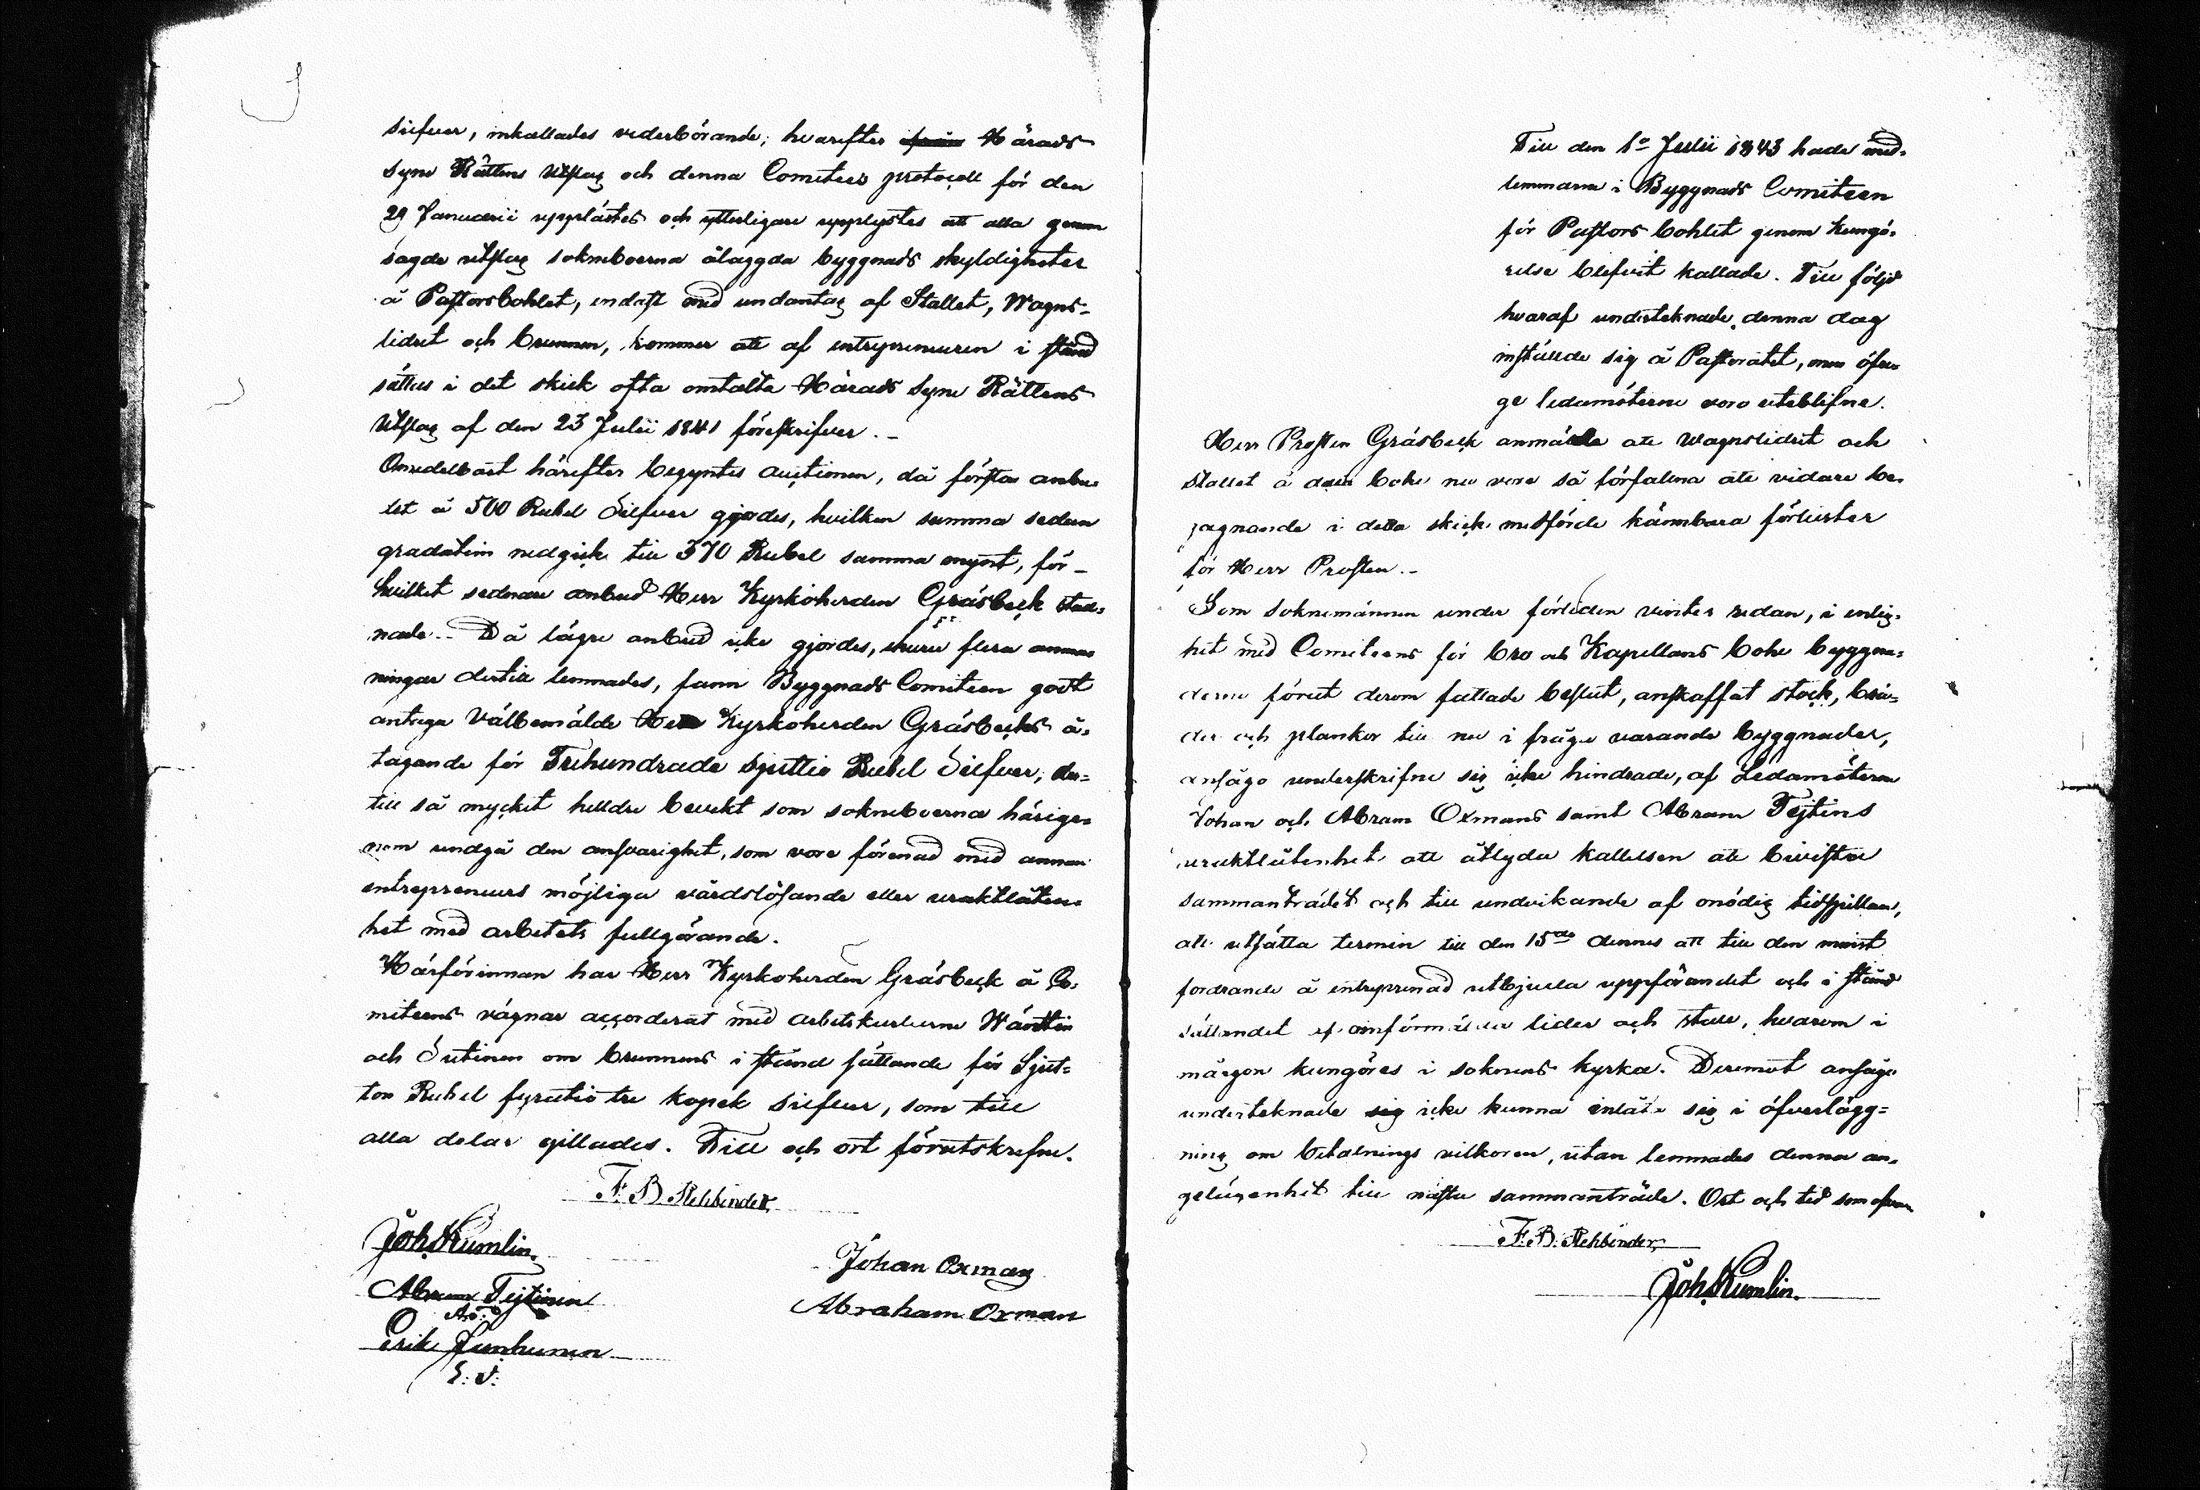 silfver, inkallades vederbörande; hvarefter Härads
Syne Rättens Utslag och denna Comitees protocoll för den
29 Januarii upplästes och ytterligare upplystes att alla genom
sagde utslag sokneboerna ålaggda byggnads skyldigheter
å Pastorsbohlet, endast med undantag af Stallet, Wagns-
lidret och brunnen, kommer att af entrepreneuren i stånd
sättas i det skick ofta omtalta Härads Syne Rättens
Utslag af den 23 Julii 1841 föreskrifver. -
Omedelbart härefter begyntes auctionen, då första anbu-
det å 500 Rubel Silfver gjordes, hvilken summa sedan
gradatim nedgick till 370 Rubel samma mynt, för-
hvilket sednare anbud Herr Kyrkoherden Gråsbeck stad-
nade. - Då lägre anbud icke gjordes, ehuru flera anma-
ningar dertill lemnades, fann Byggnads Comiteen godt
antaga Välbemälde Herr Kyrkoherden Gråsbecks å-
tagande för Trehundrade Sjuttio Rubel Silfver, der-
till så mycket helldre bevekt som sokneboerna härige-
nom undgå den ansvarighet, som vore förenad med annan
entrepreneurs möjliga vårdslösande eller uraktlåten-
het med arbetets fullgörande.
Härförinnan har Herr Kyrkoherden Gråsbeck å Co-
miteens vägnar accorderat med arbetskarlarne
och Sutinen om brunnens i stånd sättande för Sjut-
ton Rubel fyratio tre kopek silfver, som till
alla delar gillades. Till och ort förutskrefne.
F. B. Rehbinder.
Joh. Kumlin.
Johan Oxman
Abram Tejtinen
Abraham Oxman
Erik Junhunen
Till den 1o Julii 1843 hade med-
lemmarne i Byggnads Comiteen
för Pastors bohlet genom Kungö-
relse blefvit kallade. Till följd
hvaraf undertecknade denna dag
inställde sig å Pastoratet, men öfri-
ge ledamöterne voro uteblifne.
Herr Prosten Gråsbeck anmälde att wagnslidret och
Stallet å dess bohl nu vore så förfallna att vidare be-
gagnande i detta skick medförde kännbara förluster
för Herr Prosten. -
Som soknemännen under förleden vinter redan, i enlig-
het med Comiteens för bro och Kapellans bohl byggna-
derne förut derom fattade beslut, anskaffat stock, brä-
der och plankor till nu i fråga varande byggnader,
ansågo underskrifne sig icke hindrade, af Ledamöterne
Johan och Abram Oxmans samt Abram Tejtins
uraktlåtenhet att åtlyda kallelsen att bivista
sammanträdet och till undvikande af onödig tidspillan,
att utsätta termin till den 15de dennes att till den minst
fordrande å entreprenad utbjuda uppförandet och i stånd
sättandet af omförmälda lider och stall, hvarom i
morgon kungöres i soknens kyrka. Deremot ansågo
undertecknade sig icke kunna inlåta sig i öfverlägg-
ning om betalnings vilkoren, utan lemnades denna an-
gelägenhet till nästa sammanträde. Ort och tid som ofvan
F. B. Rehbinder.
Joh. Kumlin.